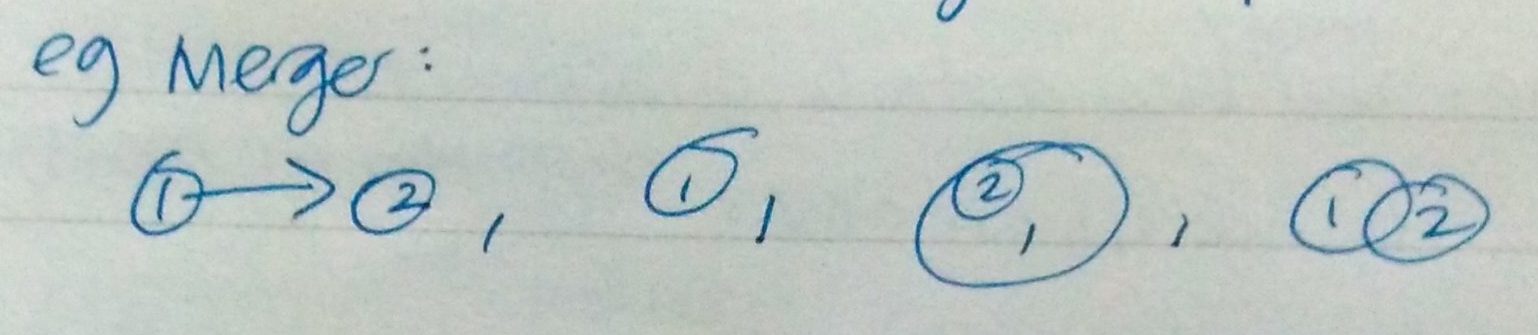 eg Merger:
① → ②, ①, ② 1, 1 2